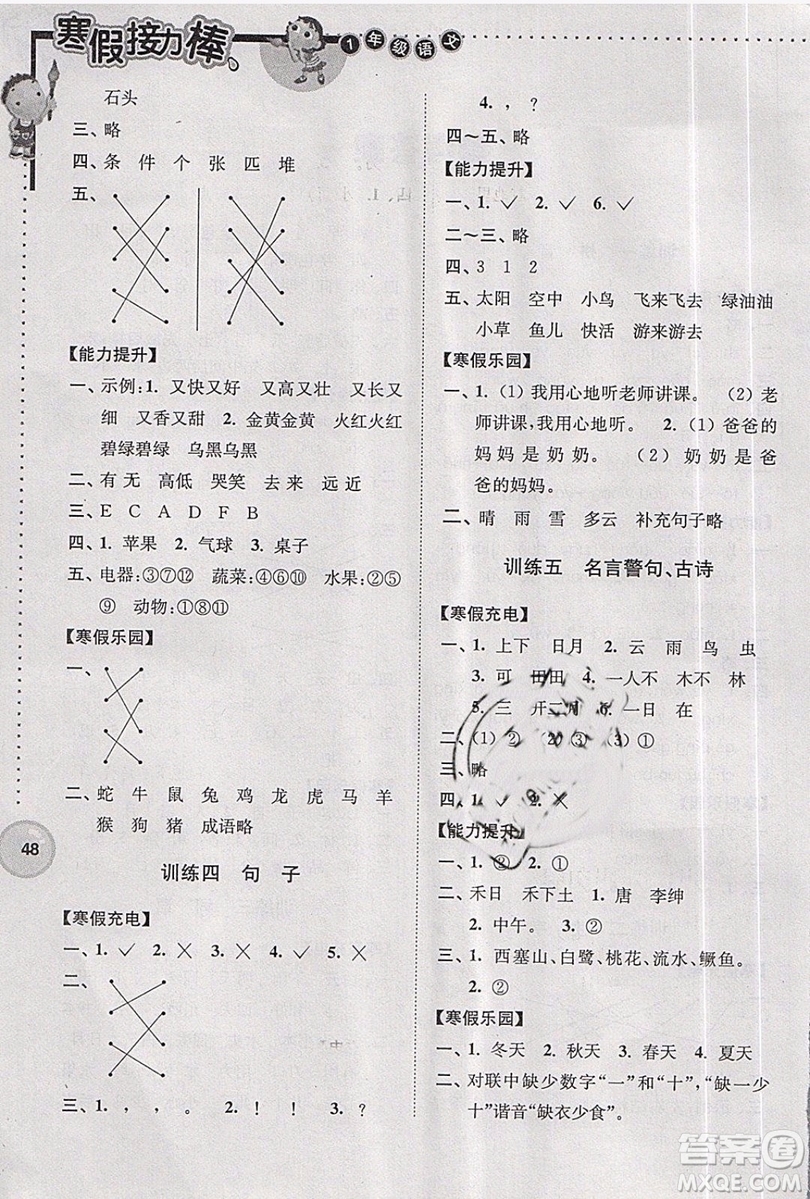 寒假接力棒
1年级语文
石头
三、略
四、条 件 个 张 匹 堆
五、
【能力提升】
一、示例:1. 又快又好 又高又壮 又长又
细 又香又甜 2. 金黄金黄 火红火红
碧绿碧绿 乌黑乌黑
二、有 无 高低 哭笑 去来 远 近
三、E C A D F B
四、1. 苹果 2. 气球 3. 桌子
五、电器:③⑦⑫ 蔬菜:④⑥⑩ 水果:②⑤
⑨ 动物:①⑧⑪
【寒假乐园】
一、
二、蛇 牛 鼠 兔 鸡 龙 虎 马 羊
猴 狗 猪 成语略
48
训练四 句 子
【寒假充电】
一、1. ✓ 2. ✕ 3. ✕ 4. ✓ 5. ✕
二、
三、1. , , 。 2. ! ! 3. ?
4. , ?
四～五、略
【能力提升】
一、1. ✓ 2. ✓ 6. ✓
二～三、略
四、3 1 2
五、太阳 空中 小鸟 飞来飞去 绿油油
小草 鱼儿 快活 游来游去
【寒假乐园】
一、1. (1) 我用心地听老师讲课。 (2) 老
师讲课,我用心地听。 2. (1) 爸爸的
妈妈是奶奶。 (2) 奶奶是爸
爸的妈妈。
二、晴 雨 雪 多云 补充句子略
训练五 名言警句、古诗
【寒假充电】
一、1. 上下 日月 2. 云 雨 鸟 虫
3. 可 田田 4. 一人不 木不 林
5. 三 开二月 6. 一日 在
二、(1) ② (2) ③ (3) ①
三、略
四、1. ✓ 2. ✕
【能力提升】
一、1. ② 2. ①
二、禾日 禾下土 1. 唐 李绅
2. 中午。 3. ②
三、1. 西塞山、白鹭、桃花、流水、鳜鱼。
2. ②
【寒假乐园】
一、1. 冬天 2. 秋天 3. 春天 4. 夏天
二、对联中缺少数字“一”和“十”,“缺一少
十”谐音“缺衣少食”。
答案圈
MXQE.COM